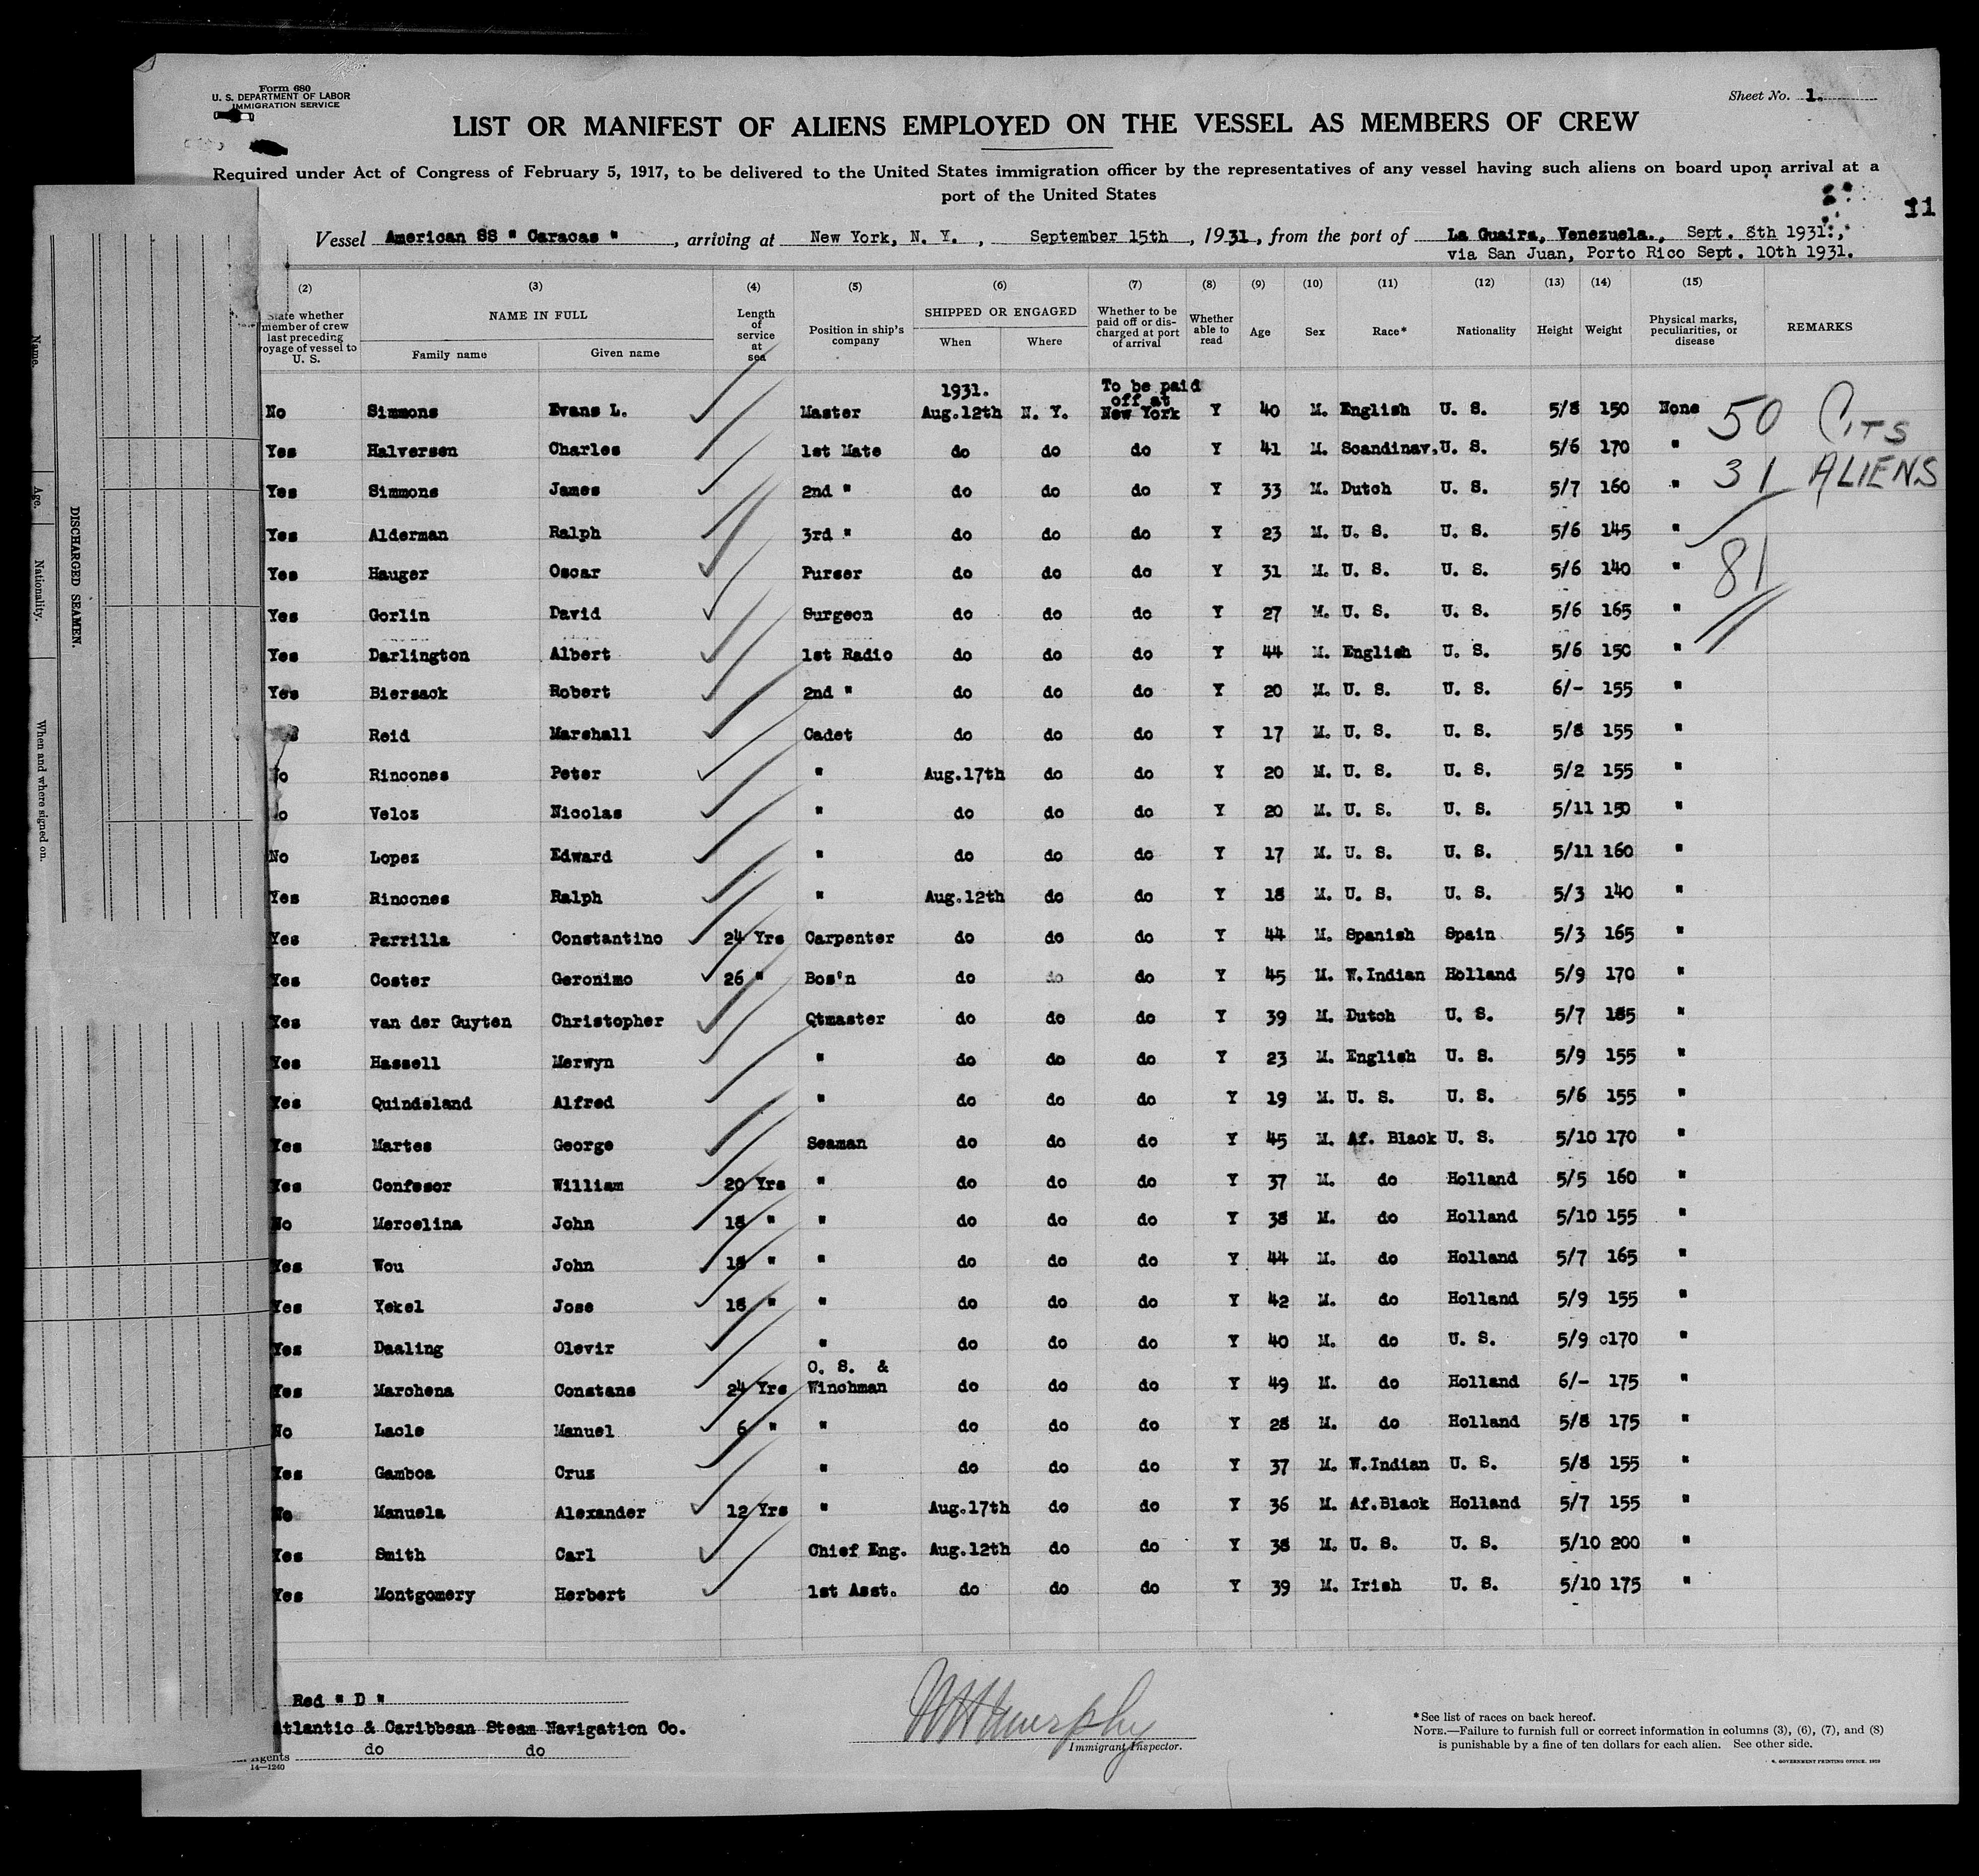 Form 680
U. S. DEPARTMENT OF LABOR
IMMIGRATION SERVICE
Sheet No. 1.
LIST OR MANIFEST OF ALIENS EMPLOYED ON THE VESSEL AS MEMBERS OF CREW
Required under Act of Congress of February 5, 1917, to be delivered to the United States immigration officer by the representatives of any vessel having such aliens on board upon arrival at a
port of the United States
11
Vessel American SS " Caracas ", arriving at New York, N. Y., September 15th, 1931, from the port of La Guaira, Venezuela., Sept. 8th 1931.,
via San Juan, Porto Rico Sept. 10th 1931.
(2) (3) (4) (5) (6) (7) (8) (9) (10) (11) (12) (13) (14) (15)
State whether member of crew last preceding voyage of vessel to U. S. NAME IN FULL Family name Given name Length of service at sea Position in ship's company SHIPPED OR ENGAGED When Where Whether to be paid off or discharged at port of arrival Whether able to read Age Sex Race* Nationality Height Weight Physical marks, peculiarities, or disease REMARKS
1931. To be paid off at
No Simmons Evans L. Master Aug.12th N. Y. New York Y 40 M. English U. S. 5/8 150 None 50 CITS
Yes Halversen Charles 1st Mate do do do Y 41 M. Scandinav. U. S. 5/6 170 "
Yes Simmons James 2nd " do do do Y 33 M. Dutch U. S. 5/7 160 " 31 ALIENS
Yes Alderman Ralph 3rd " do do do Y 23 M. U. S. U. S. 5/6 145 "
Yes Hauger Oscar Purser do do do Y 31 M. U. S. U. S. 5/6 140 " 81
Yes Gorlin David Surgeon do do do Y 27 M. U. S. U. S. 5/6 165 "
Yes Darlington Albert 1st Radio do do do Y 44 M. English U. S. 5/6 150 "
Yes Biersack Robert 2nd " do do do Y 20 M. U. S. U. S. 6/- 155 "
Reid Marshall Cadet do do do Y 17 M. U. S. U. S. 5/8 155 "
No Rincones Peter " Aug.17th do do Y 20 M. U. S. U. S. 5/2 155 "
No Veloz Nicolas " do do do Y 20 M. U. S. U. S. 5/11 150 "
No Lopez Edward " do do do Y 17 M. U. S. U. S. 5/11 160 "
Yes Rincones Ralph " Aug.12th do do Y 18 M. U. S. U. S. 5/3 140 "
Yes Parrilla Constantino 24 Yrs Carpenter do do do Y 44 M. Spanish Spain 5/3 165 "
Yes Coster Geronimo 26 " Bos'n do do do Y 45 M. W.Indian Holland 5/9 170 "
Yes van der Guyten Christopher Qtmaster do do do Y 39 M. Dutch U. S. 5/7 185 "
Yes Hassell Merwyn " do do do Y 23 M. English U. S. 5/9 155 "
Yes Quindsland Alfred " do do do Y 19 M. U. S. U. S. 5/6 155 "
Yes Martes George Seaman do do do Y 45 M. Af. Black U. S. 5/10 170 "
Yes Confesor William 20 Yrs " do do do Y 37 M. do Holland 5/5 160 "
No Mercelina John 18 " " do do do Y 38 M. do Holland 5/10 155 "
Yes Wou John 18 " " do do do Y 44 M. do Holland 5/7 165 "
Yes Yekel Jose 18 " " do do do Y 42 M. do Holland 5/9 155 "
Yes Daaling Olevir " do do do Y 40 M. do U. S. 5/9 c170 "
O. S. &
Yes Marchena Constans 24 Yrs Winchman do do do Y 49 M. do Holland 6/- 175 "
No Lacle Manuel 6 " " do do do Y 28 M. do Holland 5/8 175 "
Yes Gamboa Cruz " do do do Y 37 M. W.Indian U. S. 5/8 155 "
No Manuela Alexander 12 Yrs " Aug.17th do do Y 36 M. Af.Black Holland 5/7 155 "
Yes Smith Carl Chief Eng. Aug.12th do do Y 38 M. U. S. U. S. 5/10 200 "
Yes Montgomery Herbert 1st Asst. do do do Y 39 M. Irish U. S. 5/10 175 "
Red " D "
Atlantic & Caribbean Steam Navigation Co.
do do
Agents
14—1240
W H Murphy
Immigrant Inspector.
*See list of races on back hereof.
NOTE.—Failure to furnish full or correct information in columns (3), (6), (7), and (8)
is punishable by a fine of ten dollars for each alien. See other side.
GOVERNMENT PRINTING OFFICE.
DISCHARGED SEAMEN.
Name.
Age.
Nationality.
When and where signed on.